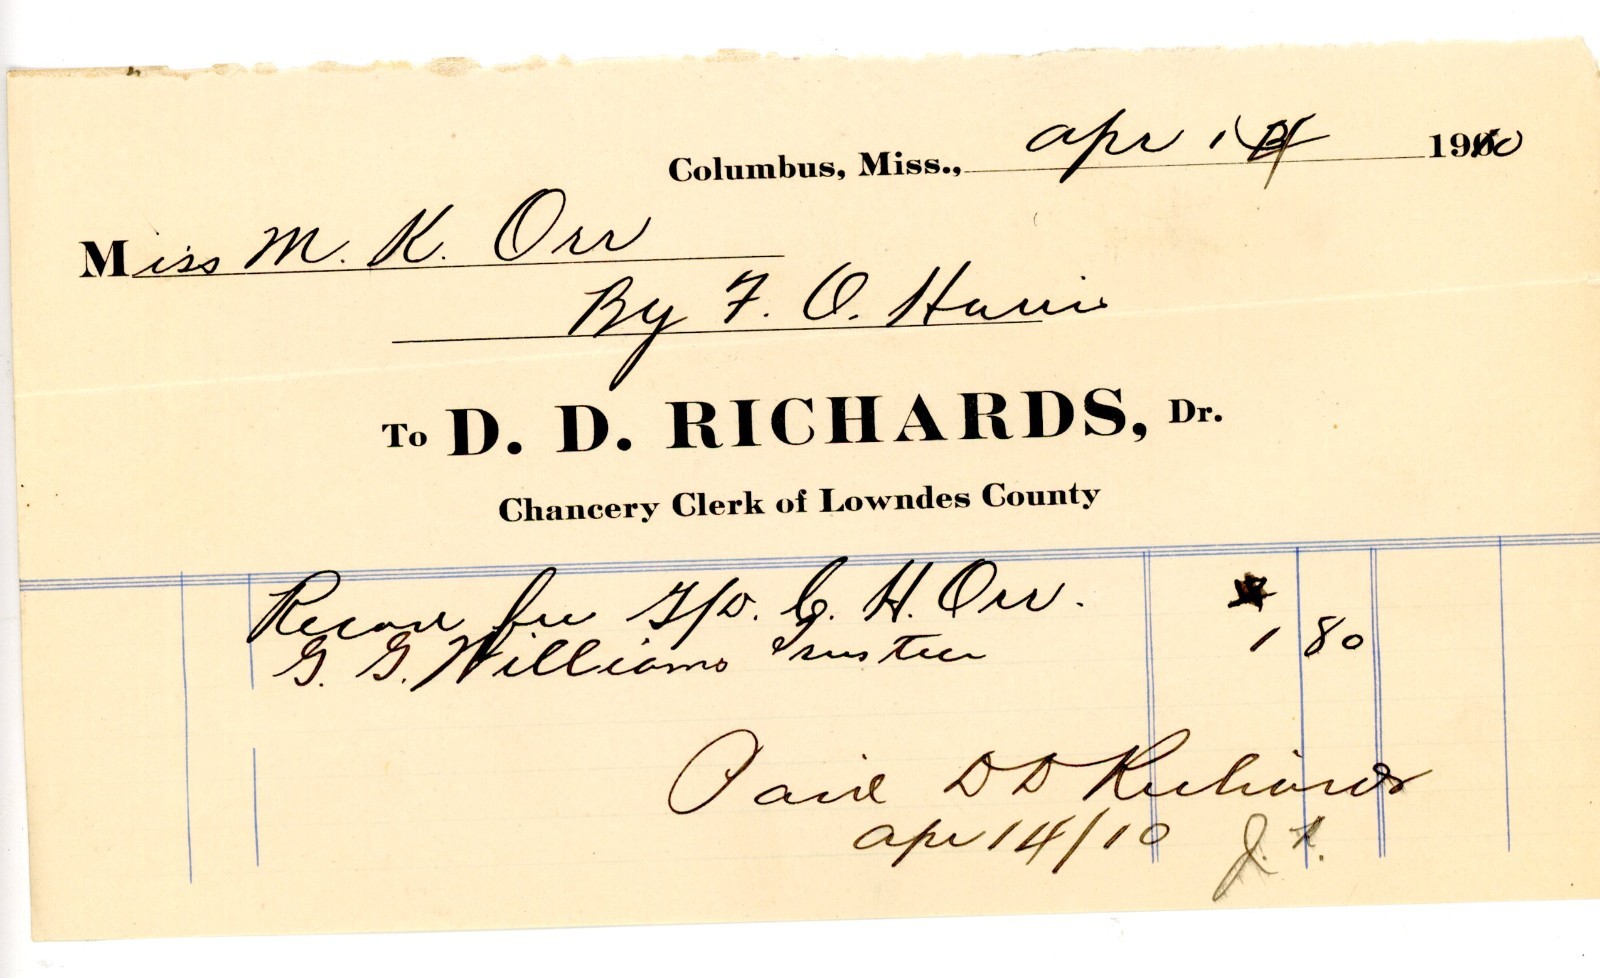 Columbus, Miss., Apr 14 1910
Miss M. K. Orr
By F. O. Harris
To D. D. RICHARDS, Dr.
Chancery Clerk of Lowndes County
Record fee T/D. C. H. Orr.
G. G. Williams Trustee 1 80
Paid D D Richards
Apr 14/10